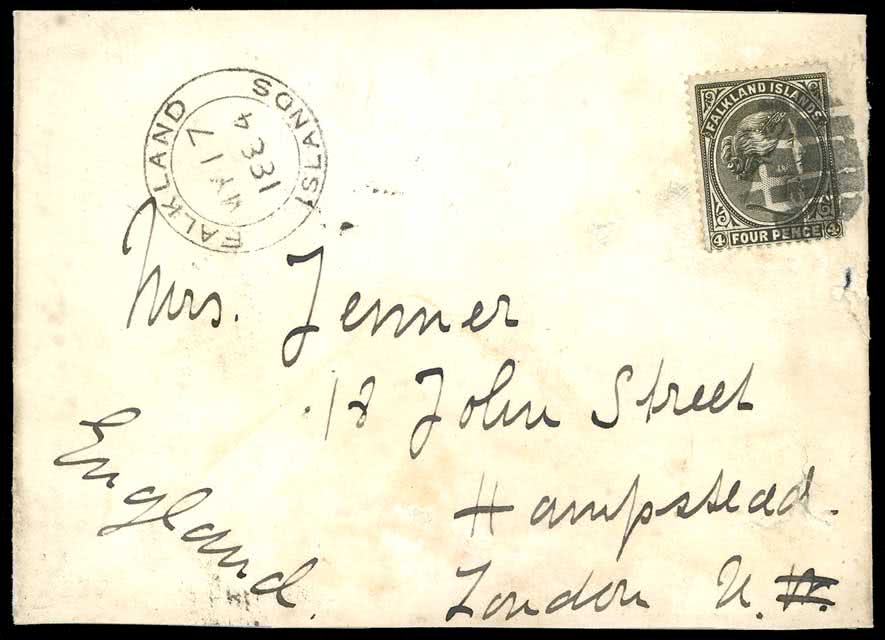 FALKLAND ISLANDS
MY 17
1884
FALKLAND ISLANDS
4 FOUR PENCE 4
Mrs. Jenner
18 John Street
Hampstead.
London N. W.
England.